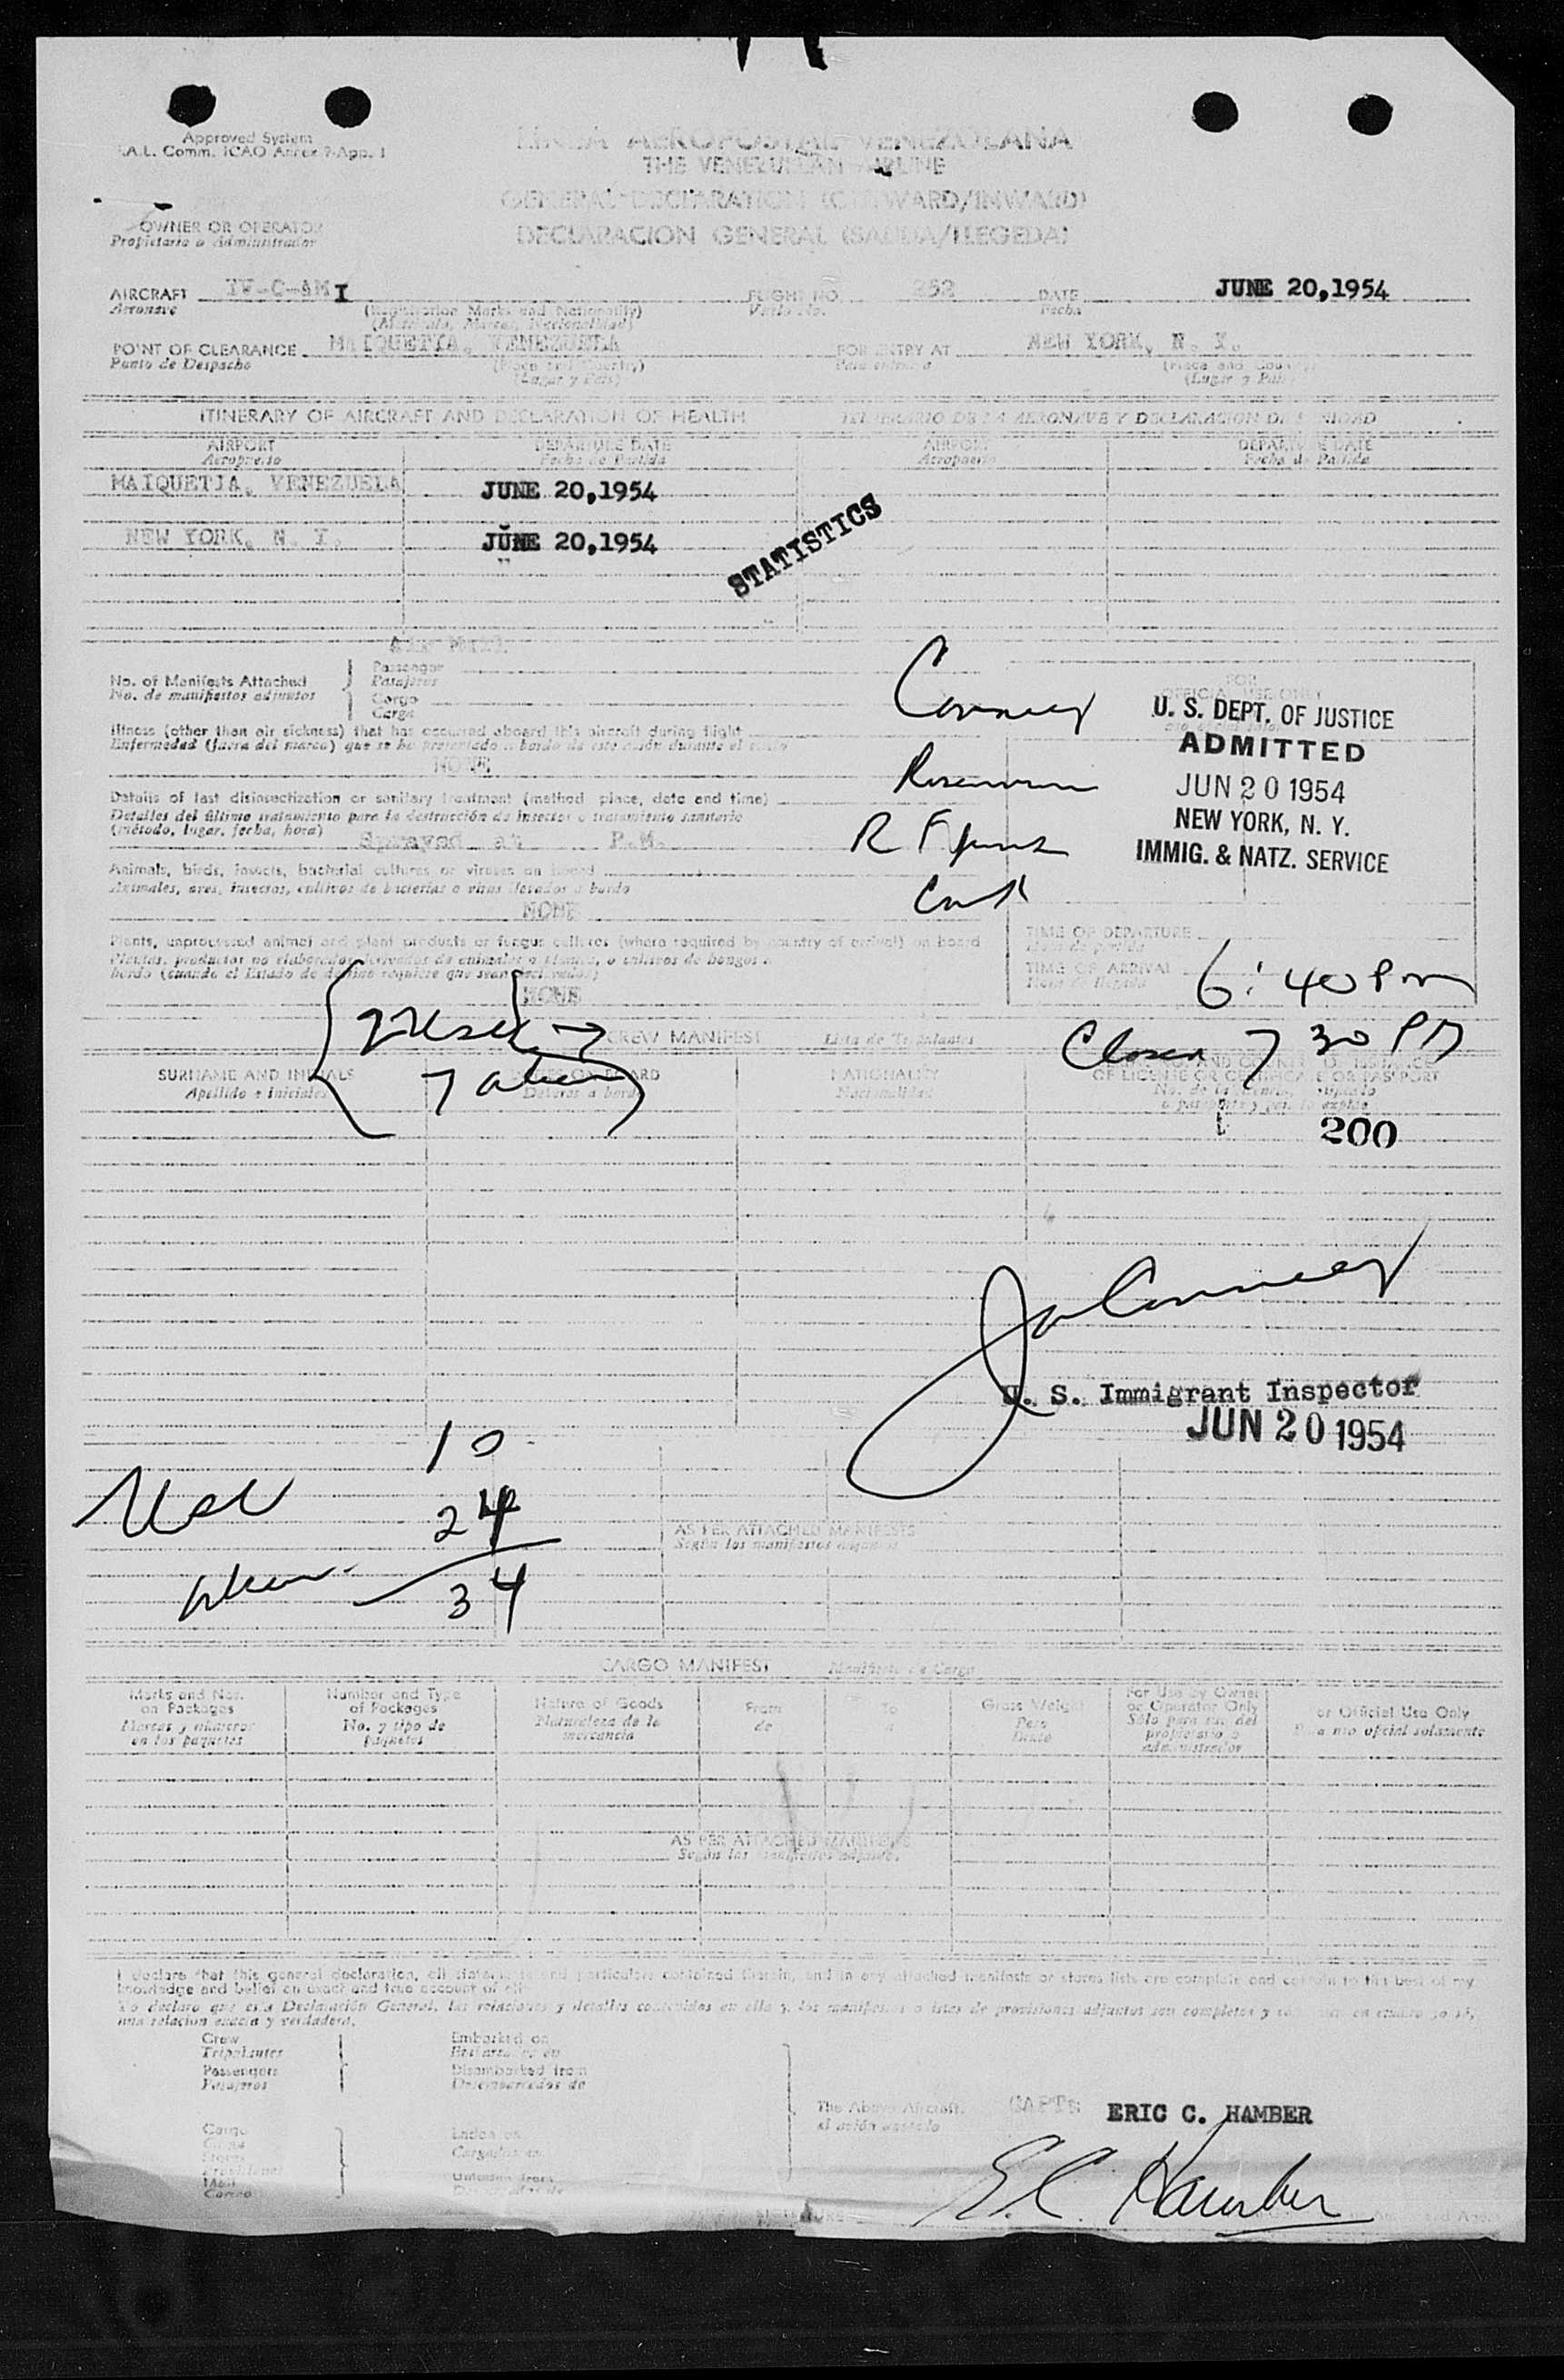 Approved System
I.A.L. Comm. ICAO Annex 9-App. 1
LINEA AEROPOSTAL VENEZOLANA
THE VENEZUELAN AIRLINE
GENERAL DECLARATION (OUTWARD/INWARD)
DECLARACION GENERAL (SALIDA/LLEGEDA)
OWNER OR OPERATOR
Propietario o Administrador
AIRCRAFT YV-C-AMI FLIGHT NO. 252 DATE JUNE 20,1954
Aeronave (Registration Marks and Nationality) Vuelo No. Fecha
(Matricula, Marcas, Nacionalidad)
POINT OF CLEARANCE MAIQUETIA, VENEZUELA FOR ENTRY AT NEW YORK, N. Y.
Punto de Despacho (Place and Country) Para entrar a (Place and Country)
(Lugar y País) (Lugar y País)
ITINERARY OF AIRCRAFT AND DECLARATION OF HEALTH ITINERARIO DE LA AERONAVE Y DECLARACION DE SANIDAD
AIRPORT DEPARTURE DATE AIRPORT DEPARTURE DATE
Aeropuerto Fecha de Partida Aeropuerto Fecha de Partida
MAIQUETIA, VENEZUELA JUNE 20,1954
NEW YORK, N. Y. JUNE 20,1954
STATISTICS
No. of Manifests Attached
No. de manifiestos adjuntos
Passenger
Pasajeros
Cargo
Carga
Illness (other than air sickness) that has occurred aboard this aircraft during flight
Enfermedad (fuera del mareo) que se ha presentado a bordo de este avión durante el vuelo
NONE
Details of last disinsectization or sanitary treatment (method place, date and time)
Detalles del último tratamiento para la destrucción de insectos o tratamiento sanitario
(método, lugar, fecha, hora) Sprayed at P.M.
Animals, birds, insects, bacterial cultures or viruses on board
Animales, aves, insectos, cultivos de bacterias o virus llevados a bordo
NONE
Plants, unprocessed animal and plant products or fungus cultures (where required by country of arrival) on board
Plantas, productos no elaborados derivados de animales o plantas, o cultivos de hongos a
bordo (cuando el Estado de destino requiere que sean declarados)
NONE
Conney
R F
FOR
OFFICIAL USE ONLY
U. S. DEPT. OF JUSTICE
ADMITTED
JUN 20 1954
NEW YORK, N. Y.
IMMIG. & NATZ. SERVICE
TIME OF DEPARTURE
TIME OF ARRIVAL 6:40 Pm
Closed 7 30 PM
7 alien
CREW MANIFEST Lista de Tripulantes
SURNAME AND INITIALS DUTIES ON BOARD NATIONALITY
Apellido e Iniciales Deberes a bordo Nacionalidad
OF LICENSE OR CERTIFICATE OR PASSPORT
200
U. S. Immigrant Inspector
JUN 20 1954
10
Usc 24
alien 34
AS PER ATTACHED MANIFESTS
Según los manifiestos adjuntos
CARGO MANIFEST Manifiesto de Carga
Marks and Nos. on Packages
Marcas y números en los paquetes
Number and Type of Packages
No. y tipo de paquetes
Nature of Goods
Naturaleza de la mercancía
From
de
To
a
Gross Weight
Peso Bruto
For Use by Owner or Operator Only
Sólo para uso del propietario o administrador
For Official Use Only
Para uso oficial solamente
AS PER ATTACHED MANIFESTS
Según los manifiestos adjuntos
I declare that this general declaration, all statements and particulars contained therein, and in any attached manifests or stores lists are complete and certain to the best of my
knowledge and belief an exact and true account of all
Yo declaro que esta Declaración General, las relaciones y detalles contenidos en ella y los manifiestos o listas de provisiones adjuntos son completos y
una relación exacta y verdadera.
Crew
Tripulantes
Passengers
Pasajeros
Embarked on
Embarcados en
Disembarked from
Desembarcados de
Cargo
Carga
Stores
Mail
Correo
Laden on
Cargados en
Unladen from
The Above Aircraft.
el avión anotado
CAPT: ERIC C. HAMBER
E.C. Hamber